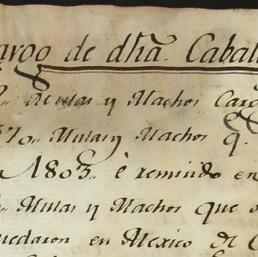 argo de dha. Caball
Mulas y Machos Carg
370. Mulas y Machos q.
1803. è remitido en
Mulas y Machos que
quedaron en Mexico de C